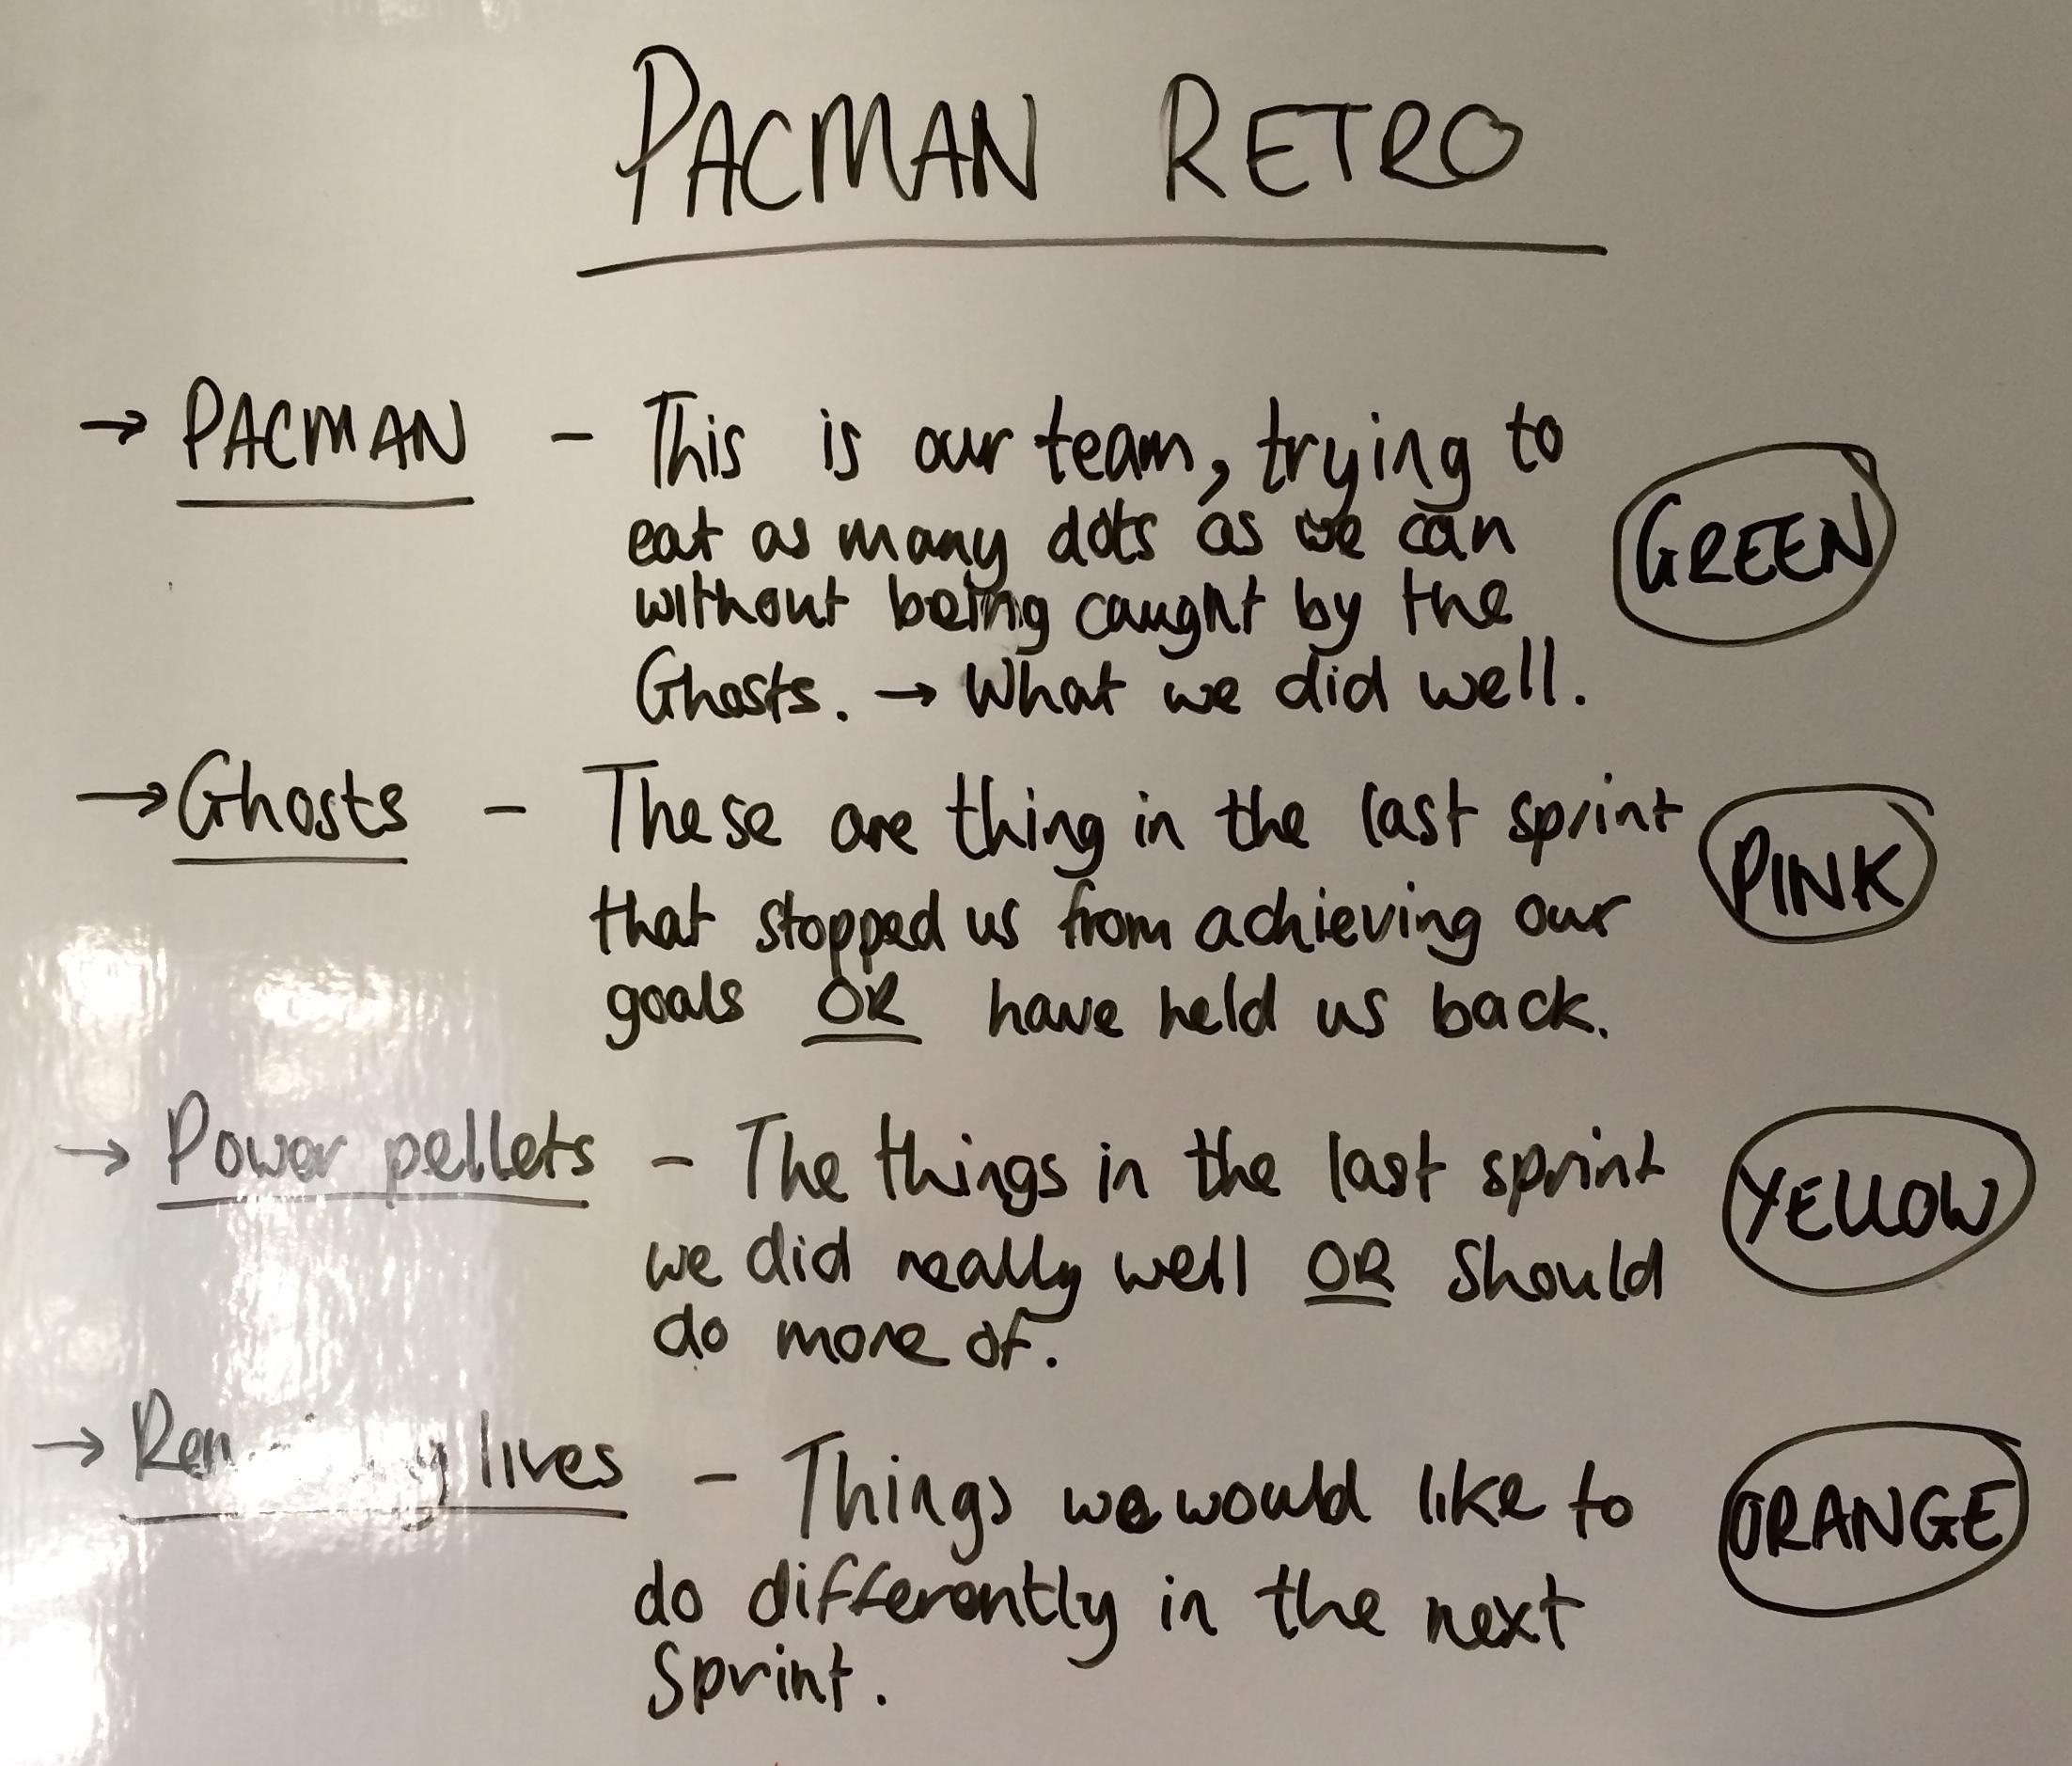 PACMAN RETRO
→ PACMAN - This is our team, trying to
eat as many dots as we can
without being caught by the
Ghosts. → What we did well.
GREEN
→ Ghosts - These are thing in the last sprint
that stopped us from achieving our
goals OR have held us back.
PINK
→ Power pellets - The things in the last sprint
we did really well OR should
do more of.
YELLOW
→ lives - Things we would like to
do differently in the next
Sprint.
ORANGE